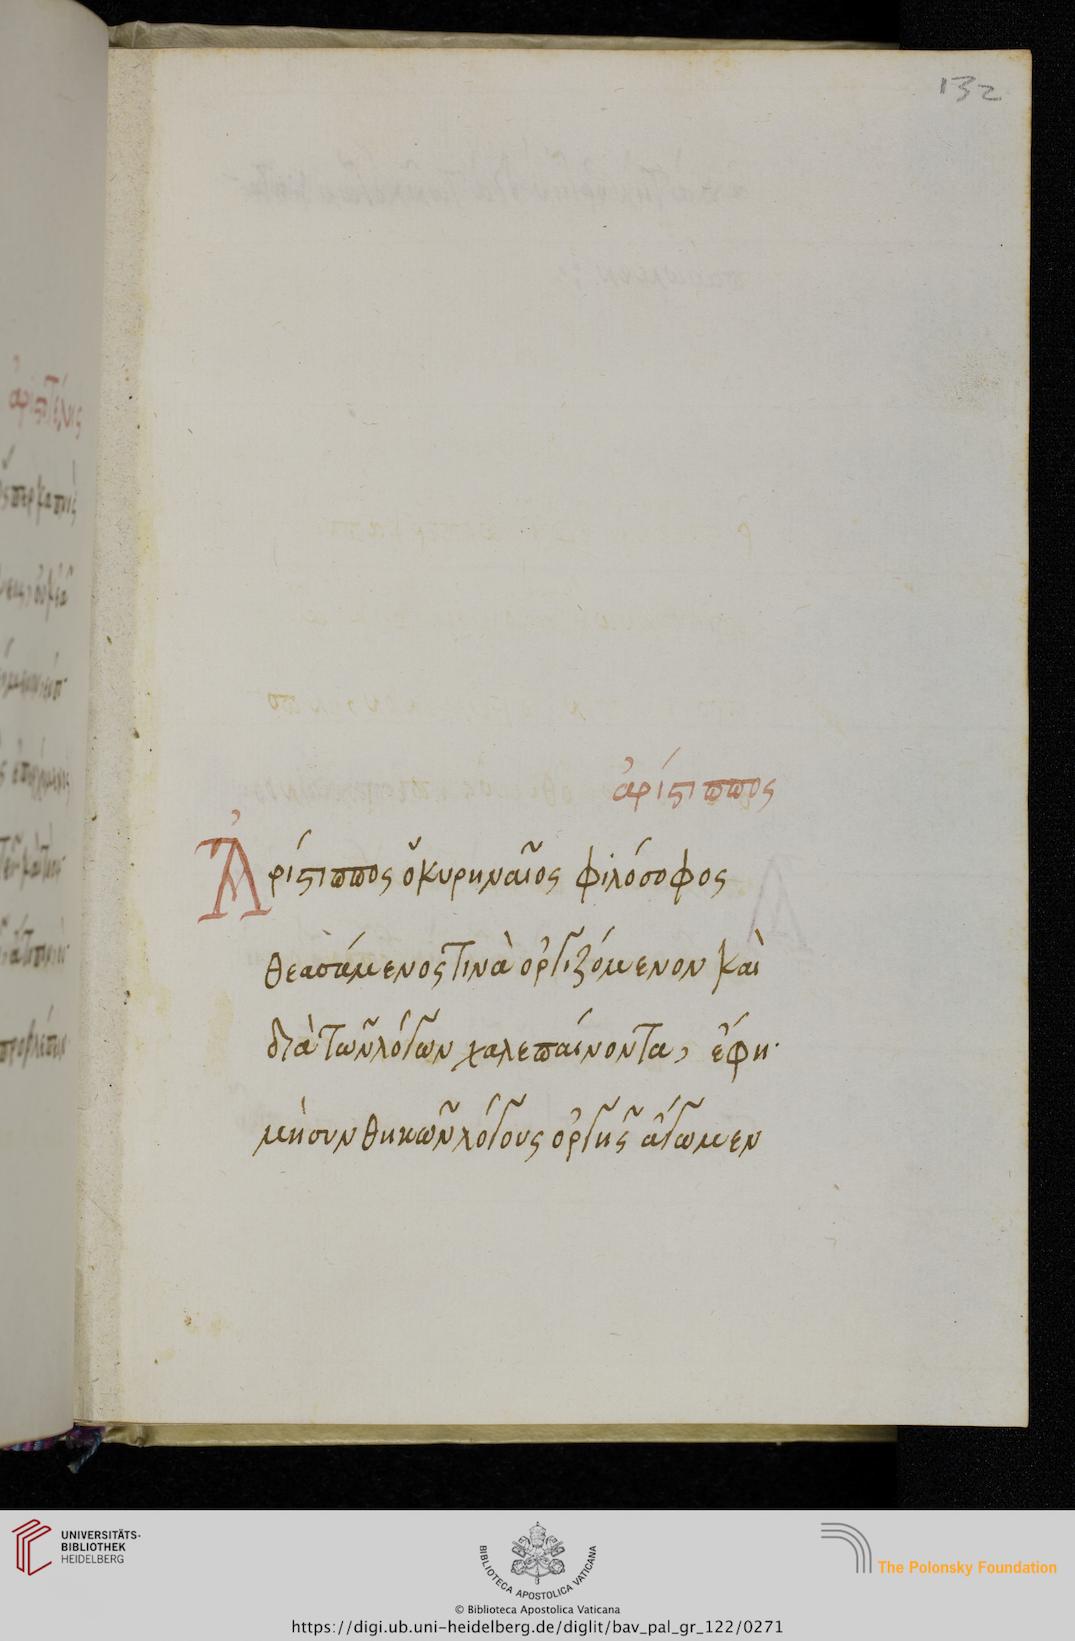 132
ἀρίστιππος
Ἀρίστιππος ὁ κυρηναῖος φιλόσοφος
θεασάμενος τινὰ ὀργιζόμενον καὶ
διὰ τῶν λόγων χαλεπαίνοντα, ἔφη·
μὴ συνθηκῶν λόγους ὀργῆς ἄγωμεν
UNIVERSITÄTS-
BIBLIOTHEK
HEIDELBERG
BIBLIOTECA APOSTOLICA VATICANA
The Polonsky Foundation
© Biblioteca Apostolica Vaticana
https://digi.ub.uni-heidelberg.de/diglit/bav_pal_gr_122/0271